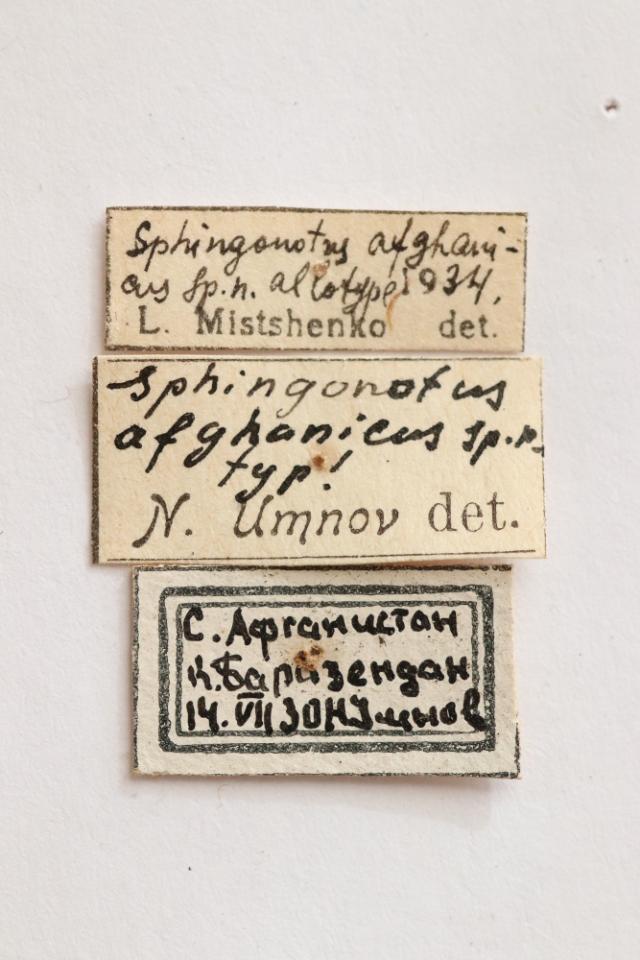 Sphingonotus afghani-
cus sp.n. allotype 1934,
L. Mistshenko det.
Sphingonotus
afghanicus sp.n.
typ!
N. Umnov det.
С. Афганистан
к. Баризендан
14.VII 30 Н Умнов